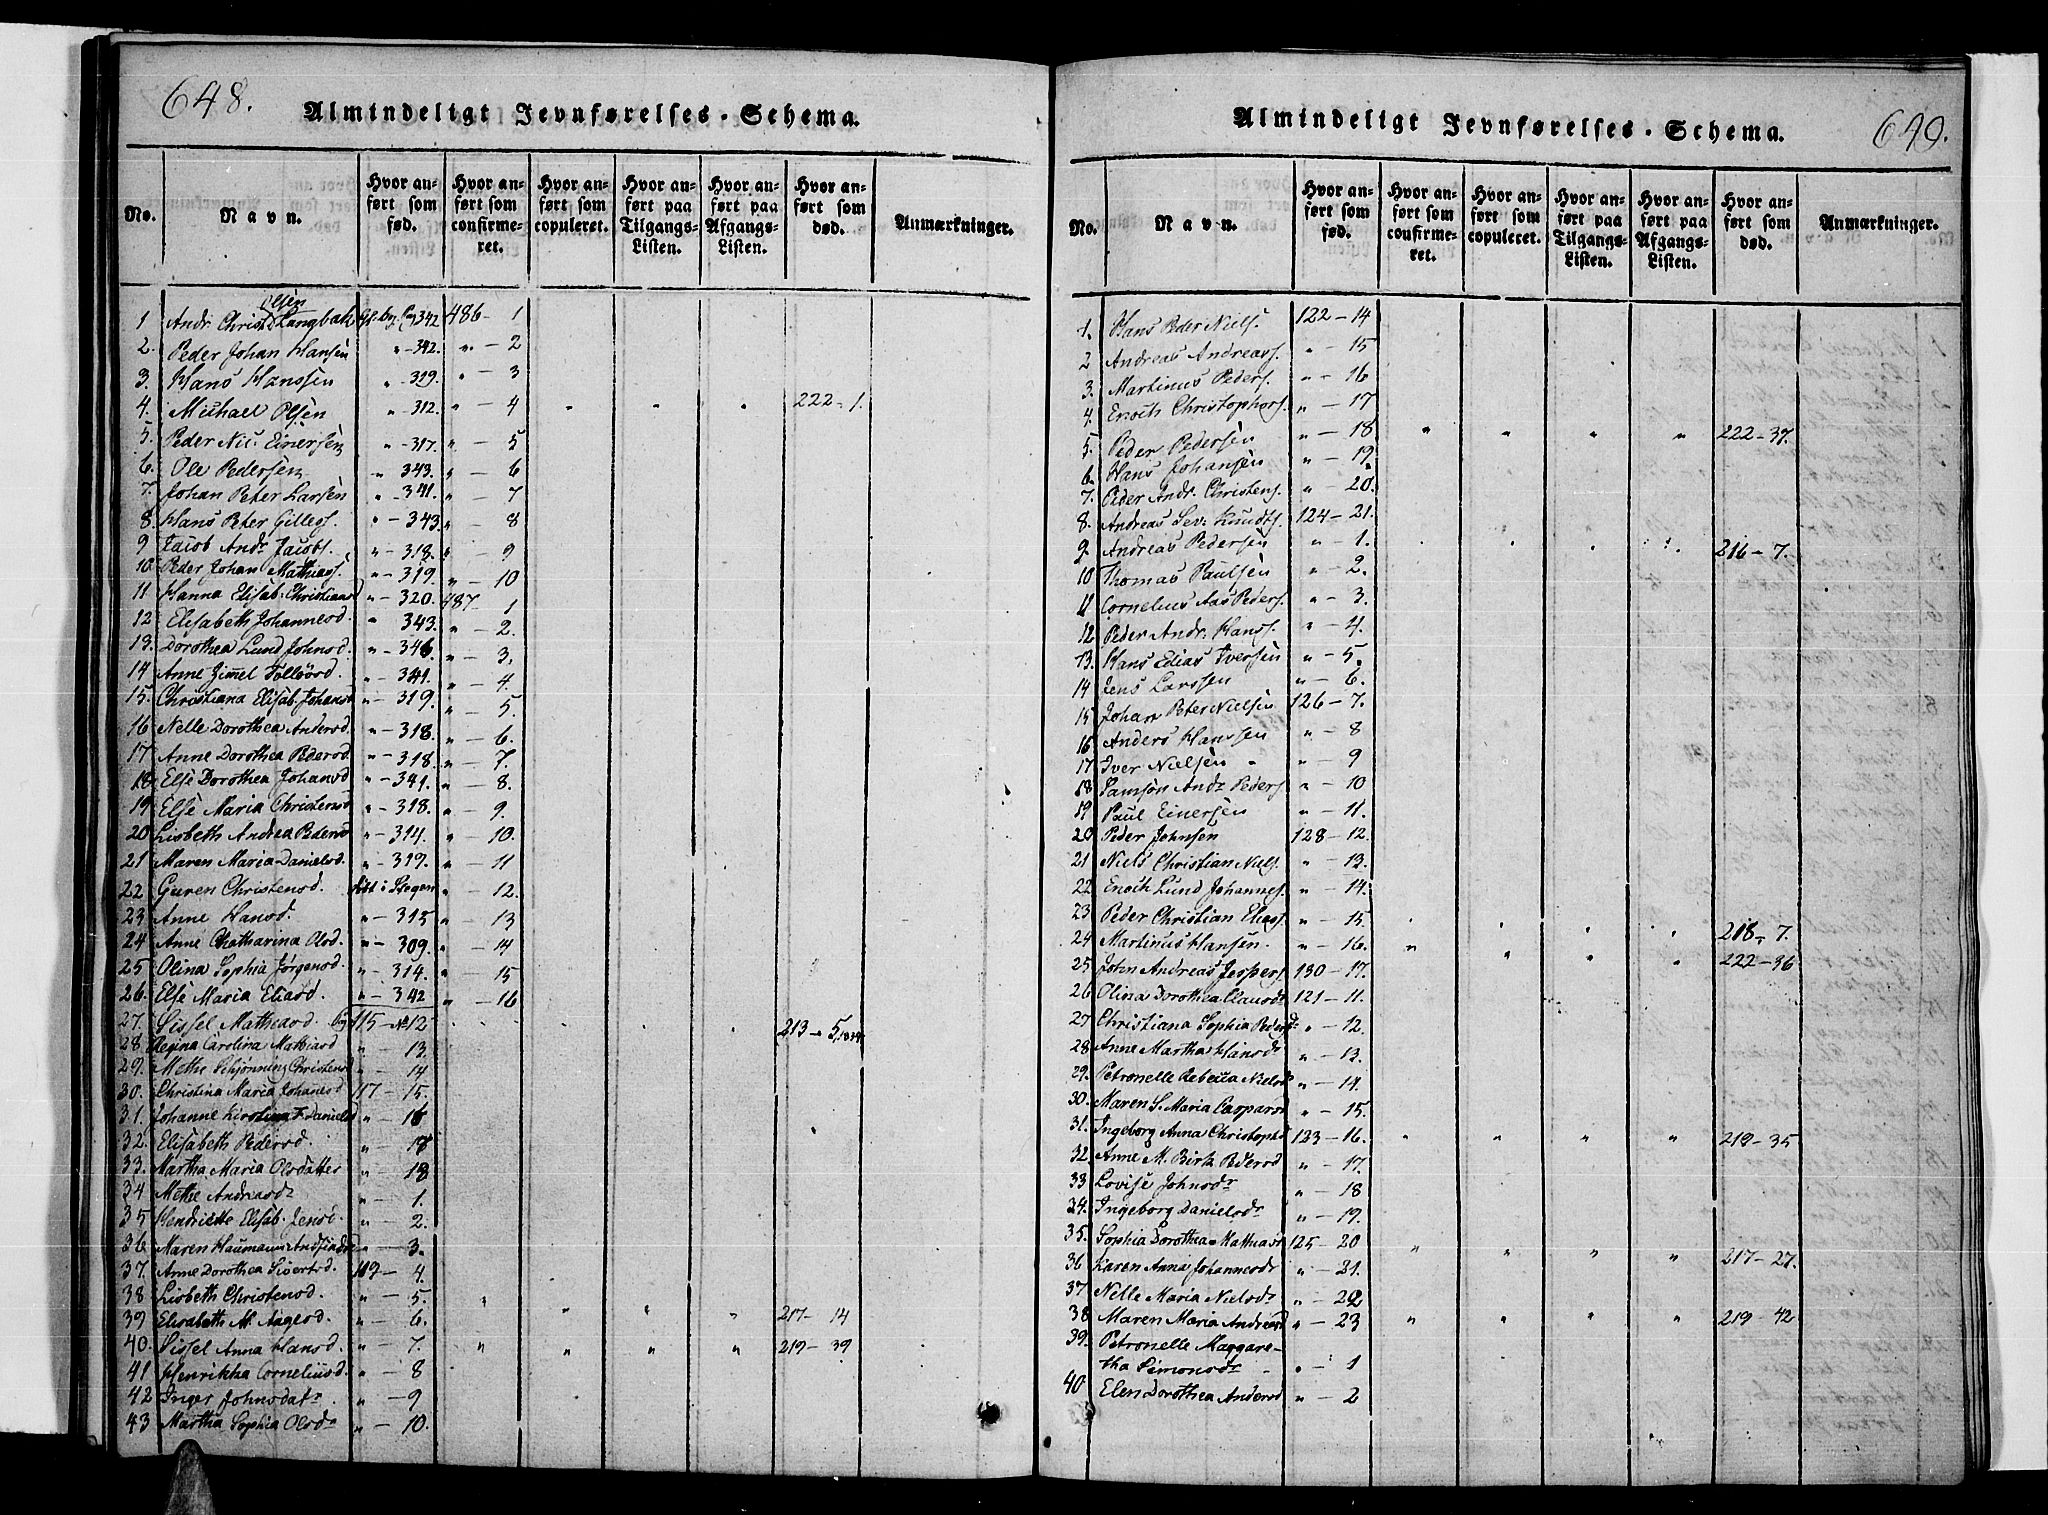 648.
Almindeligt Jevnførelses-Schema.
No.
Navn.
Hvor anført som fød.
Hvor anført som confirmeret.
Hvor anført som copuleret.
Hvor anført paa Tilgangs-Listen.
Hvor anført paa Afgangs-Listen.
Hvor anført som død.
Anmærkninger.
Olsen
1 Andr. Christ. Langbak 342 486 - 1
2. Peder Johan Hansen " - 342. " - 2
3. Hans Hanssen " - 319. " - 3
4. Michael Olsen " - 312. " - 4 " " " 222 - 1.
5. Peder Nic. Einersen " - 317. " - 5
6. Ole Pedersen " - 343. " - 6
7. Johan Peter Larsen " - 341. " - 7
8. Hans Peter Gilles. " - 343. " - 8
9 Jacob Andr. Jacobs. " - 318. " - 9
10. Peder Johan Mathiass. " - 319. " - 10
11 Hanna Elisab. Christiansd " - 320. 487 - 1
12 Elisabeth Johannesd. " 343. " - 2.
13. Dorothea Lund Johnsd. " - 346. " - 3.
14 Anne Zimel Tollevsd. " - 341. " - 4.
15. Christiana Elisab. Johansd " - 319. " - 5.
16 Nelle Dorothea Andersd. " - 318. " - 6.
17 Anne Dorothea Pedersd. " - 318. " - 7.
18 Else Dorothea Johansd " - 341. " - 8.
19 Else Maria Christensd " - 318. " - 9.
20 Lisbeth Andrea Pedersd " - 314. " - 10.
21 Maren Maria Danielsd. " - 319. " - 11
22 Guren Christensd. født i Stegen " - 12.
23 Anne Hansd. " - 315 " - 13
24 Anne Chatharina Olsd. " - 309. " - 14
25 Olina Sophia Jørgensd. " - 314. " - 15
26. Else Maria Eliasd. " - 342 " - 16
27. Sissel Matheasd. Pag 115 - No 12 " " " " 213 - 5.
28. Regina Carolina Mathiasd " - 13.
29. Methe Schjønning Christensd " - 14
30. Christina Maria Johansd 117 - 15.
31. Johanne Kirstina F. Danielsd " - 16
32. Elisabeth Pedersd. " - 17
33. Martha Maria Olsdatter " - 18
34 Methe Andreasdr " - 1.
35 Hendrikke Elisab. Jensd. " - 2.
36 Maren Haumann Andfindr " - 3.
37. Anne Dorothea Sivertsd. 119 - 4.
38 Lisbeth Christensd. " - 5.
39 Elisabeth M. Aagesd. " - 6. " " " " 217 - 14
40. Sissel Anna Hansd. " - 7. " " " " 219 - 39
41 Henrikka Corneliusd. " - 8
42 Inger Johnsdatr " - 9
43 Martha Sophia Olsdr " - 10.
Almindeligt Jevnførelses-Schema.
649.
No.
Navn.
Hvor anført som fød.
Hvor anført som confirmeret.
Hvor anført som copuleret.
Hvor anført paa Tilgangs-Listen.
Hvor anført paa Afgangs-Listen.
Hvor anført som død.
Anmærkninger.
1. Hans Peder Niels. 122 - 14
2 Andreas Andreass. " - 15
3. Martinus Peders. " - 16
4. Enoch Christophers. " - 17
5. Peder Pedersen " - 18 " " " " 222 - 37.
6 Hans Johansen " - 19.
7. Peder Andr. Christens. " - 20.
8. Andreas Sev. Knudts. 124 - 21.
9. Andreas Pedersen " - 1. 216 - 7.
10 Thomas Paulsen " - 2.
11 Cornelius Aas Peders. " - 3.
12 Peder Andr. Hanss. " - 4.
13. Hans Edias Iversen " - 5.
14 Jens Larssen " - 6.
15 Johan Peter Nielsen 126 - 7.
16 Anders Hanssen " - 8
17 Iver Nielsen " - 9
18 Samson Andr. Peders. " - 10
19 Paul Einersen " - 11.
20 Peder Johnsen 128 - 12.
21 Niels Christian Niels. " - 13.
22. Enoch Lund Johannes. " - 14.
23 Peder Christian Eliass. " - 15. 218 - 7.
24 Martinus Hansen. " - 16. " " " " 222 - 36
25. John Andreas Jespers. 130 - 17.
26 Olina Dorothea Clausdr 121 - 11.
27 Christiana Sophia Pedersdr " - 12.
28 Anne Martha Hansdr " - 13.
29. Petronelle Rebecca Nielsd " - 14.
30. Maren S. Maria Caspars. " - 15.
31. Ingeborg Anna Christophsd 123 - 16. " " " " 219 - 35
32. Anne M. Birk Pedersd " - 17.
33 Lovise Johnsdr " - 18
34. Ingeborg Danielsdr " - 19.
35. Sophia Dorothea Mathiasd 125 - 20 " " " " 217 - 27.
36 Karen Anna Johannesdr " - 21.
37 Nelle Maria Nielsdr " - 22
38 Maren Maria Andreasd " - 23 " " " " 219 - 42
39. Petronelle Maggare-
tha Simonsdr " - 1
40 Elen Dorothea Andersd " - 2